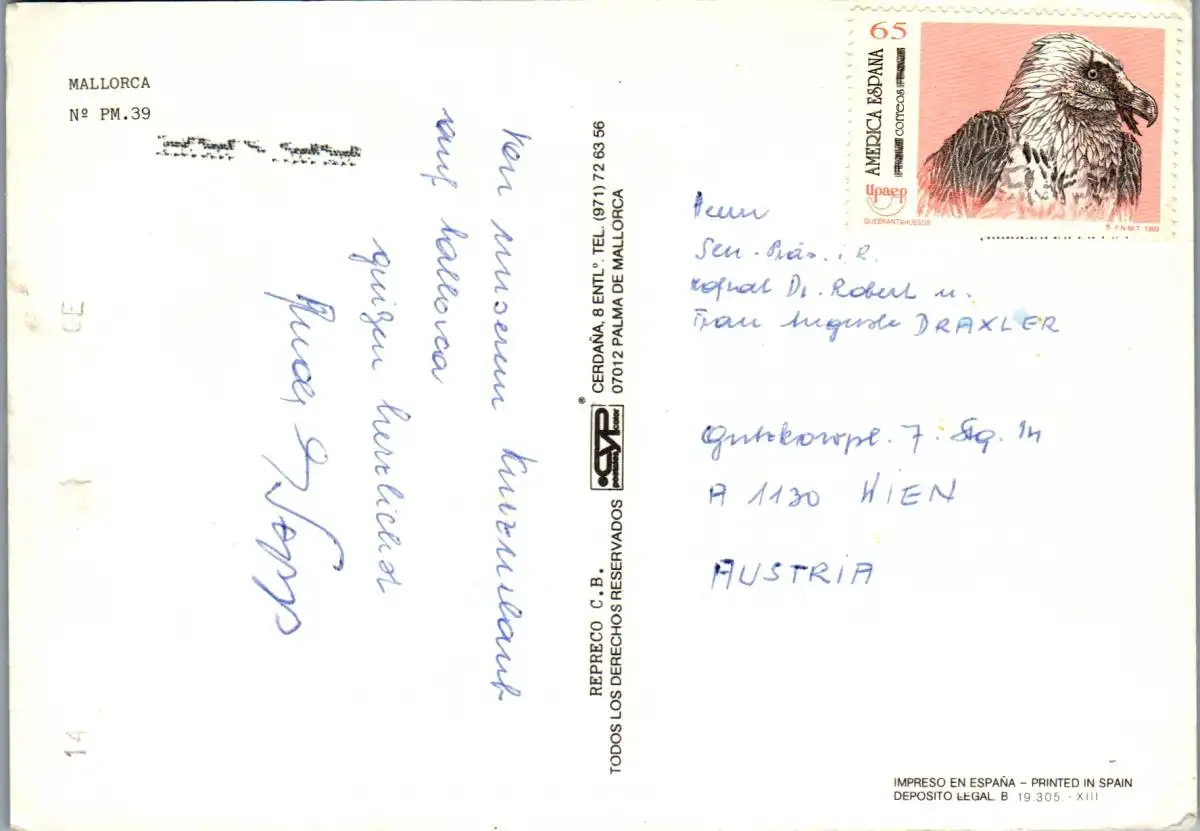 MALLORCA
Nº PM.39
Von unserem Kurzurlaub
auf Mallorca
grüzen herzlichst
CERDAÑA, 8 ENTLº. TEL. (971) 72 63 56
07012 PALMA DE MALLORCA
CYP
REPRECO C.B.
TODOS LOS DERECHOS RESERVADOS
65
AMERICA ESPAÑA
correos
Upaep
QUEBRANTAHUESOS
F.N.M.T. 1993
Herrn
Sen. Präs. i. R.
Hofrat Dr. Robert u.
Frau Auguste DRAXLER
Gutzkowpl. 7. Stg. 14
A 1130 WIEN
AUSTRIA
IMPRESO EN ESPAÑA – PRINTED IN SPAIN
DEPOSITO LEGAL B 19.305 - XIII
CE
14